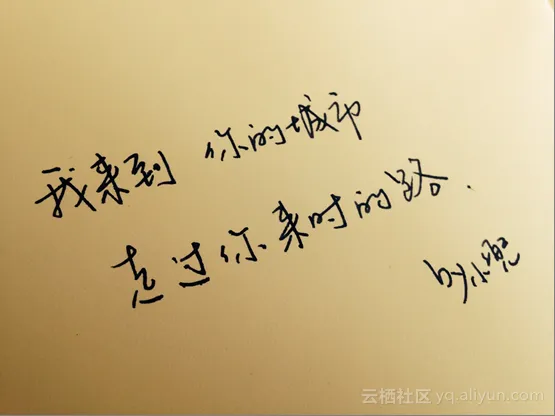 我来到 你的城市
走过你来时的路.
by小
云栖社区 yq.aliyun.com